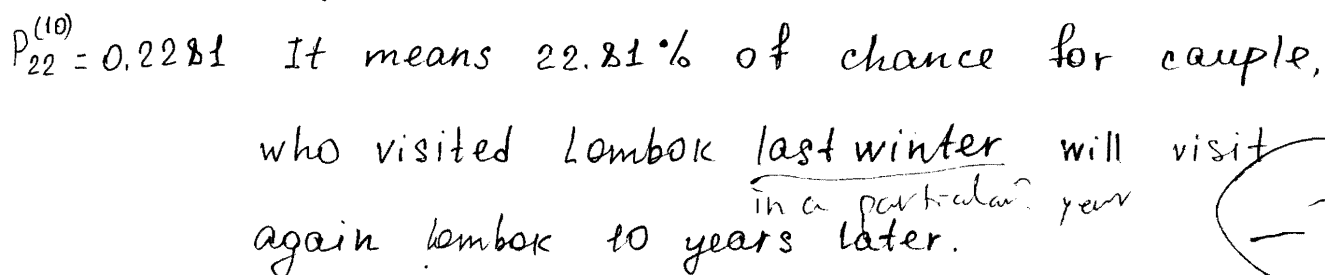 P₂₂⁽¹⁰⁾ = 0.2281 It means 22.81% of chance for cauple,
who visited Lombok last winter will visit
in a particular year
again Lombok 10 years later.